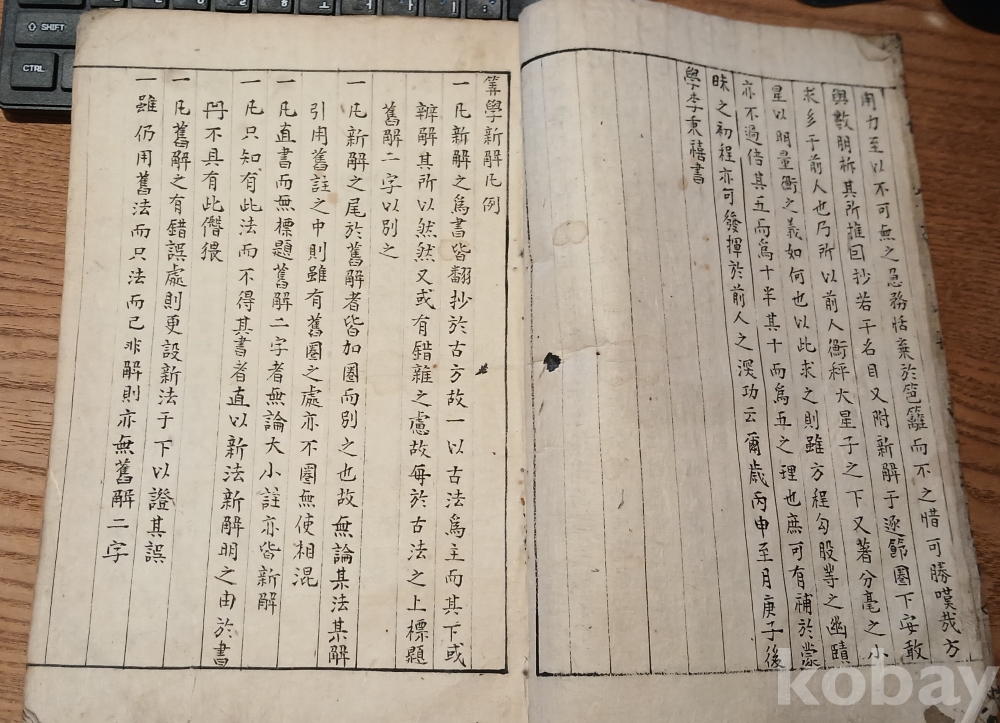 用力至以不可無之急務恬棄於笆籬而不之惜可勝嘆哉方
與數朋析其所推回抄若干名目又附新解于逐節圈下安敢
求多于前人也乃所以前人衡秤大星子之下又著分毫之小
星以明量衡之義如何也以此求之則雖方程勾股等之幽賾
亦不過倍其五而爲十半其十而爲五之理也庶可有補於蒙
昧之初程亦可發揮於前人之深功云爾歲丙申至月庚子後
學李秉禧書
筭學新解凡例
一凡新解之爲書皆翻抄於古方故一以古法爲主而其下或
辨解其所以然然又或有錯雜之慮故每於古法之上標題
舊解二字以別之
一凡新解之尾於舊解者皆加圈而別之也故無論某法某解
引用舊註之中則雖有舊圈之處亦不圈無使相混
一凡直書而無標題舊解二字者無論大小註亦皆新解
一凡只知有此法而不得其書者直以新法新解明之由於書
冊不具有此僭猥
一凡舊解之有錯誤處則更設新法于下以證其誤
一雖仍用舊法而只法而已非解則亦無舊解二字
SHIFT
CTRL
kobay